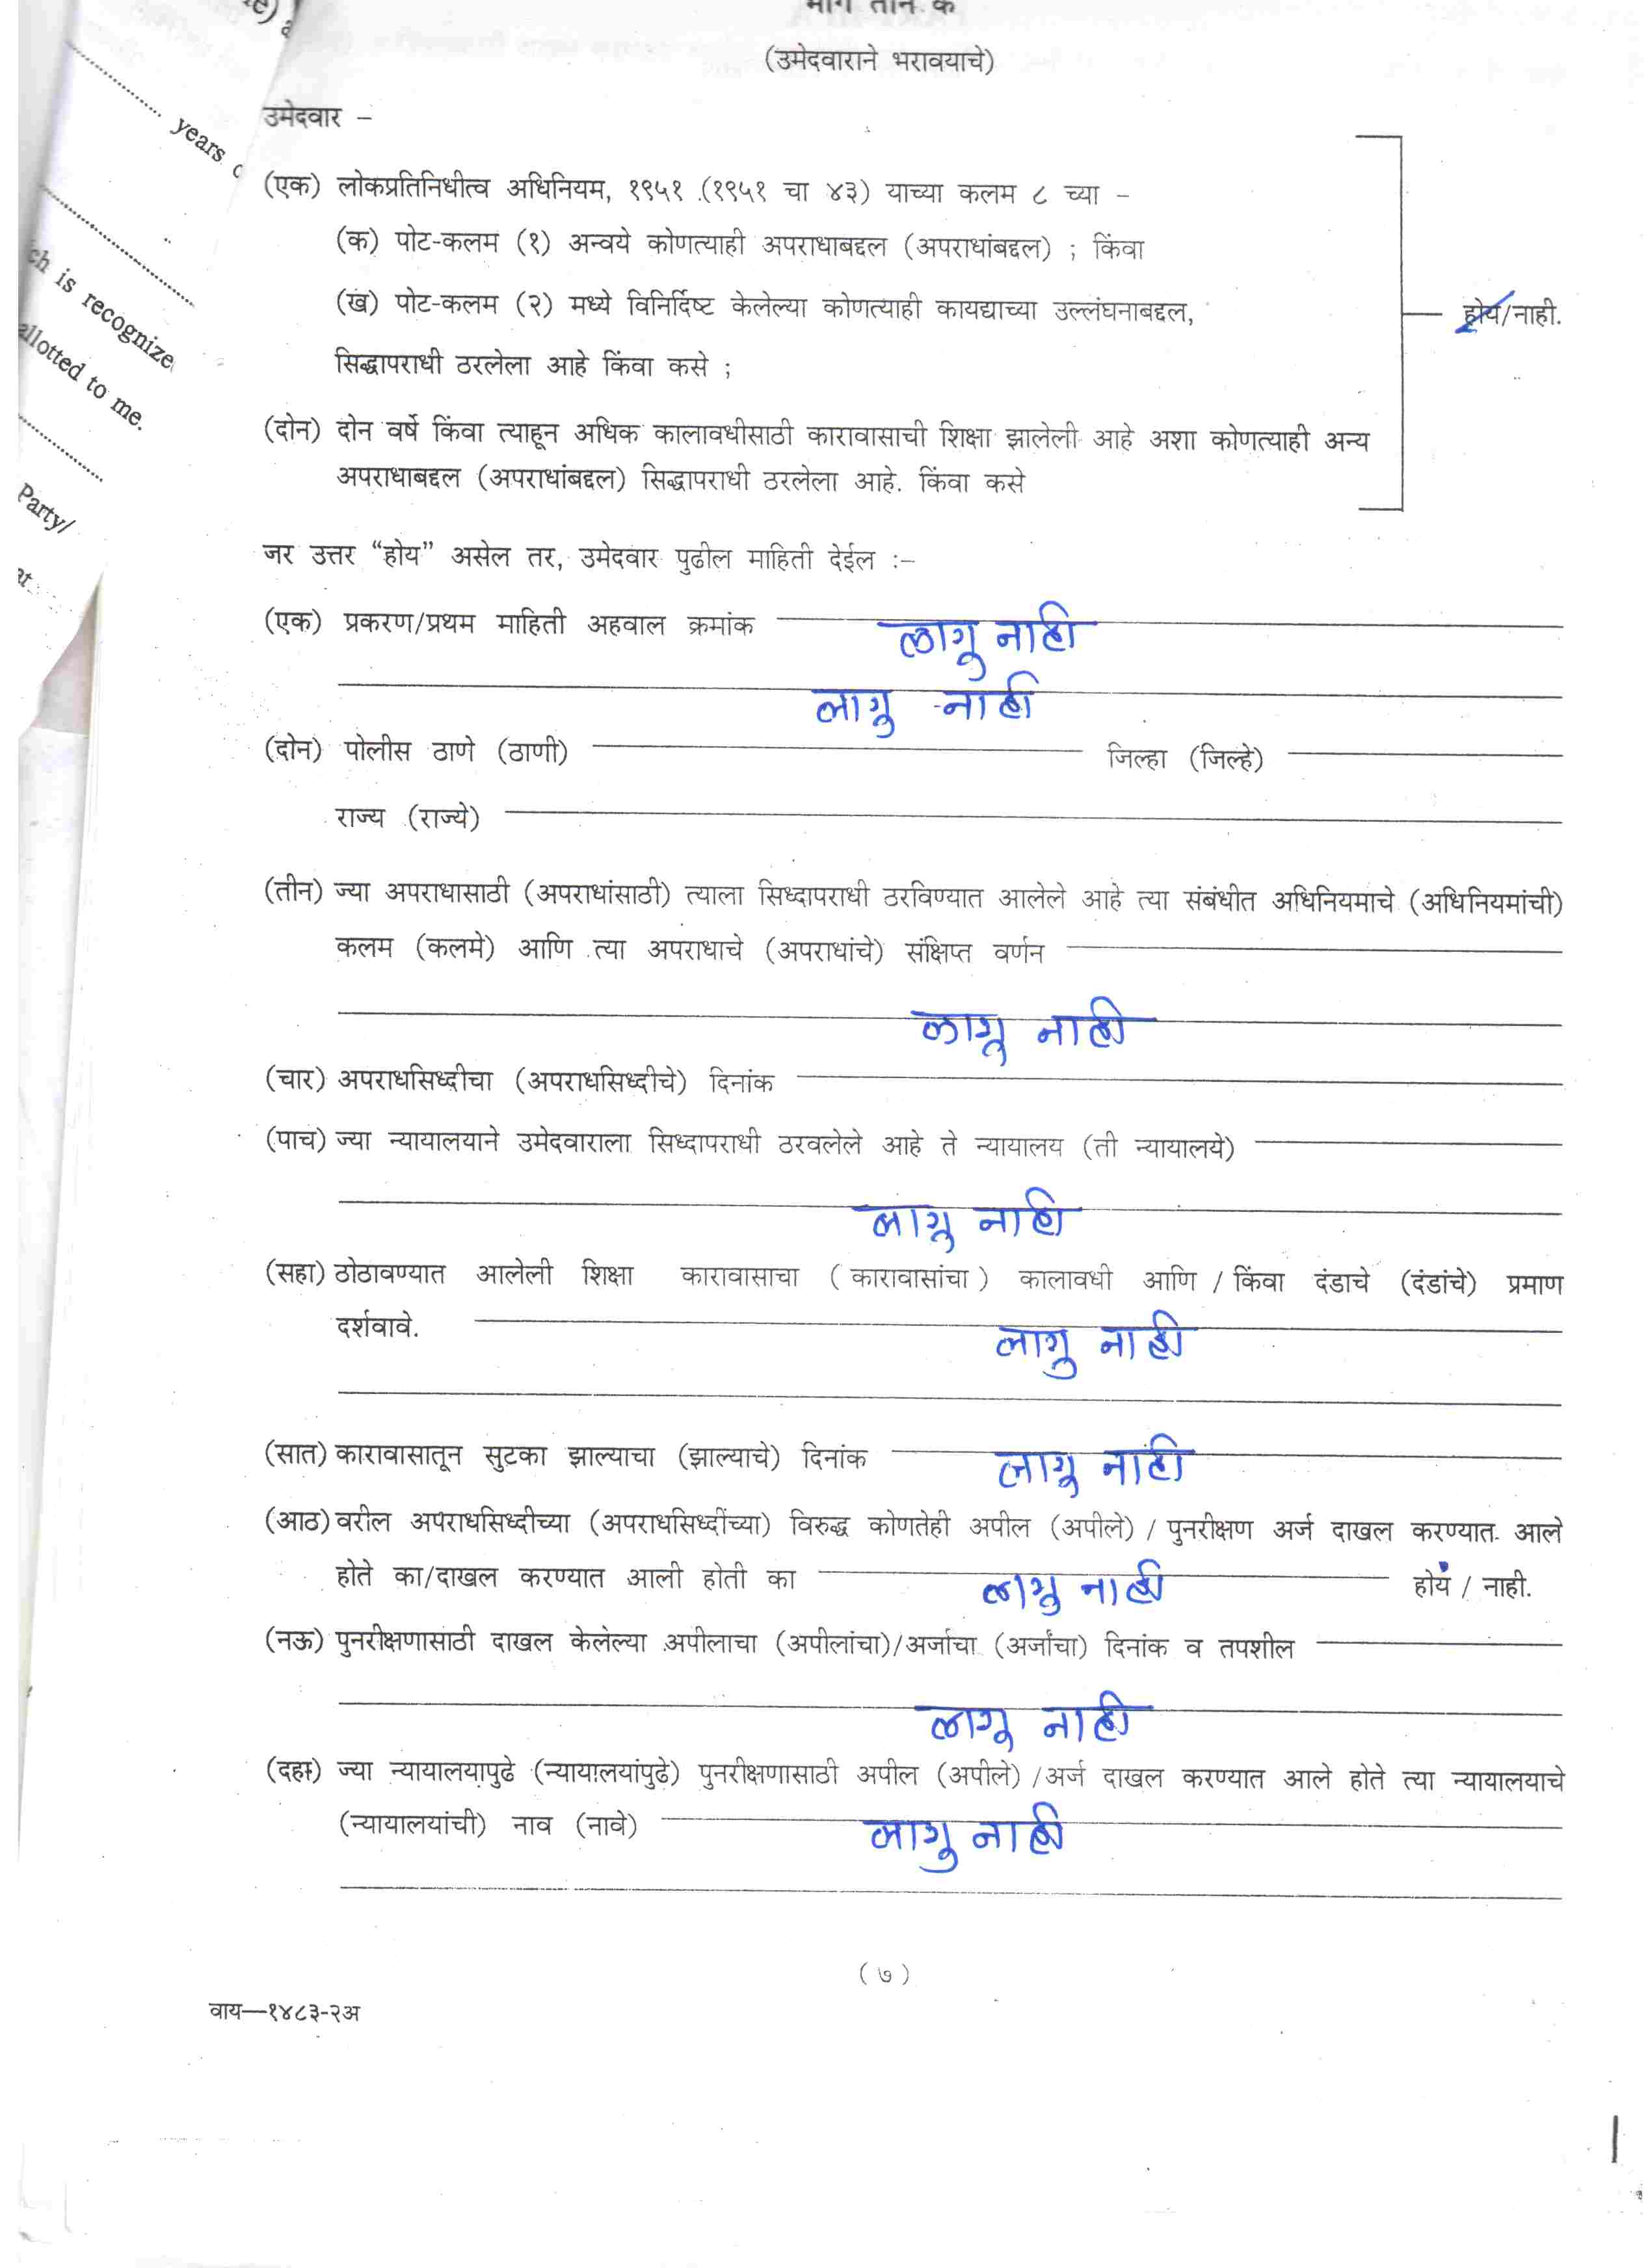 भाग तीन क
(उमेदवाराने भरावयाचे)
years
ch is recognize
allotted to me.
Party/
उमेदवार –
(एक) लोकप्रतिनिधीत्व अधिनियम, १९५१ (१९५१ चा ४३) याच्या कलम ८ च्या –
(क) पोट-कलम (१) अन्वये कोणत्याही अपराधाबद्दल (अपराधांबद्दल) ; किंवा
(ख) पोट-कलम (२) मध्ये विनिर्दिष्ट केलेल्या कोणत्याही कायद्याच्या उल्लंघनाबद्दल,
होय/नाही.
सिद्धापराधी ठरलेला आहे किंवा कसे ;
(दोन) दोन वर्षे किंवा त्याहून अधिक कालावधीसाठी कारावासाची शिक्षा झालेली आहे अशा कोणत्याही अन्य
अपराधाबद्दल (अपराधांबद्दल) सिद्धापराधी ठरलेला आहे. किंवा कसे
जर उत्तर “होय” असेल तर, उमेदवार पुढील माहिती देईल :–
(एक) प्रकरण/प्रथम माहिती अहवाल क्रमांक लागु नाही
लागु नाही
(दोन) पोलीस ठाणे (ठाणी) जिल्हा (जिल्हे)
राज्य (राज्ये)
(तीन) ज्या अपराधासाठी (अपराधांसाठी) त्याला सिध्दापराधी ठरविण्यात आलेले आहे त्या संबंधीत अधिनियमाचे (अधिनियमांची)
कलम (कलमे) आणि त्या अपराधाचे (अपराधांचे) संक्षिप्त वर्णन
लागू नाही
(चार) अपराधसिध्दीचा (अपराधसिध्दीचे) दिनांक
(पाच) ज्या न्यायालयाने उमेदवाराला सिध्दापराधी ठरवलेले आहे ते न्यायालय (ती न्यायालये)
लागू नाही
(सहा) ठोठावण्यात आलेली शिक्षा कारावासाचा (कारावासांचा) कालावधी आणि / किंवा दंडाचे (दंडांचे) प्रमाण
दर्शवावे. लागु नाही
(सात) कारावासातून सुटका झाल्याचा (झाल्याचे) दिनांक लागू नाही
(आठ) वरील अपराधसिध्दीच्या (अपराधसिध्दींच्या) विरुद्ध कोणतेही अपील (अपीले) / पुनरीक्षण अर्ज दाखल करण्यात आले
होते का/दाखल करण्यात आली होती का लागु नाही होय / नाही.
(नऊ) पुनरीक्षणासाठी दाखल केलेल्या अपीलाचा (अपीलांचा)/अर्जाचा (अर्जांचा) दिनांक व तपशील
लागू नाही
(दहा) ज्या न्यायालयापुढे (न्यायालयांपुढे) पुनरीक्षणासाठी अपील (अपीले) /अर्ज दाखल करण्यात आले होते त्या न्यायालयाचे
(न्यायालयांची) नाव (नावे) लागु नाही
(७)
वाय—१४८३-२अ